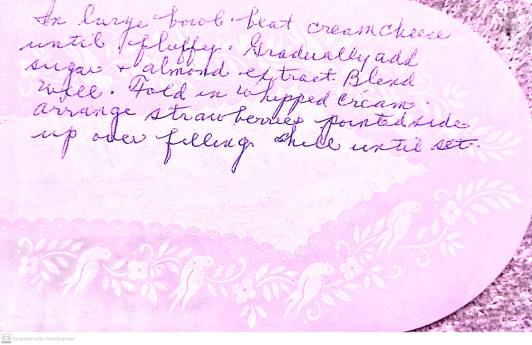 In large bowl beat creamcheese
until fluffy. Gradually add
sugar + almond extract Blend
well. Fold in whipped cream.
arrange strawberries pointed side
up over filling chill until set.
Scanned with CamScanner